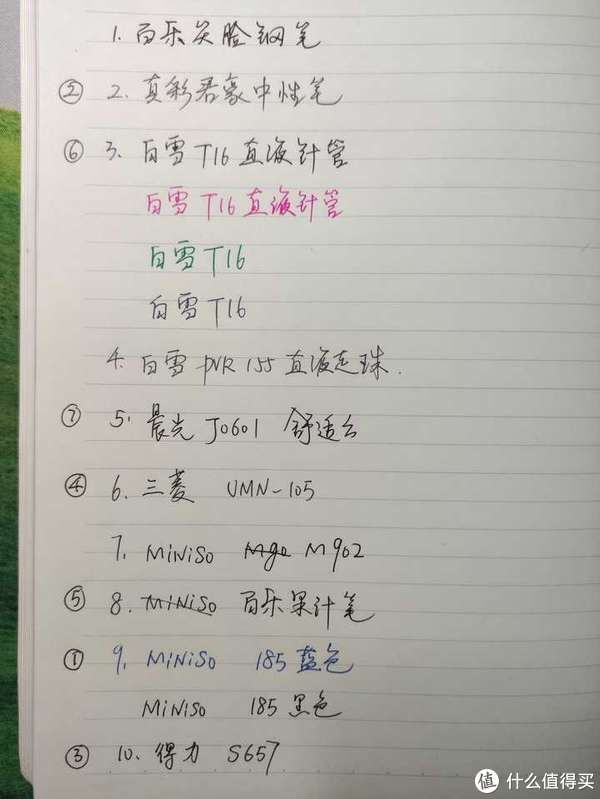 1. 百乐笑脸钢笔
② 2. 真彩君豪中性笔
⑥ 3. 白雪 T16 直液针管
白雪 T16 直液针管
白雪 T16
白雪 T16
4. 白雪 PVR 155 直液走珠.
⑦ 5. 晨光 J0601 舒适云
④ 6. 三菱 UMN-105
7. MiNiSo Mgo M902
⑤ 8. MiNiSo 百乐果汁笔
① 9. MiNiSo 185 蓝色
MiNiSo 185 黑色
③ 10. 得力 S657
值 什么值得买